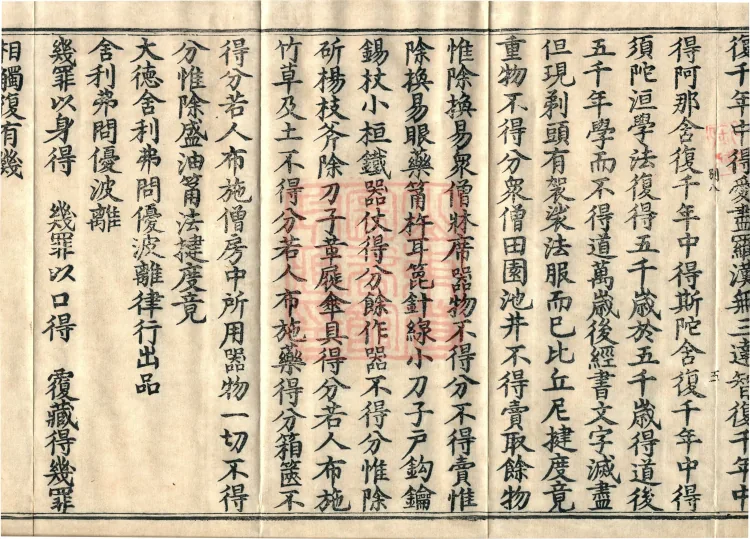 復千年中得愛盡羅漢無三達智復千年中
得阿那含復千年中得斯陀含復千年中得
須陀洹學法復得五千歲於五千歲得道後
五千年學而不得道萬歲後經書文字滅盡
但現剃頭有袈裟法服而已比丘尼揵度竟
重物不得分衆僧田園池井不得賣取餘物
惟除換易衆僧牀席器物不得分不得賣惟
除換易眼藥筩杵耳箆針線小刀子戶鈎鑰
錫杖小桓鐵器仗得分餘作器不得分惟除
斫楊枝斧除刀子革屣傘具得分若人布施
竹草及土不得分若人布施藥得分箱篋不
得分若人布施僧房中所用器物一切不得
分惟除盛油筩法揵度竟
大德舍利弗問優波離律行出品
舍利弗問優波離
幾罪以身得 幾罪以口得 覆藏得幾罪
相觸復有幾